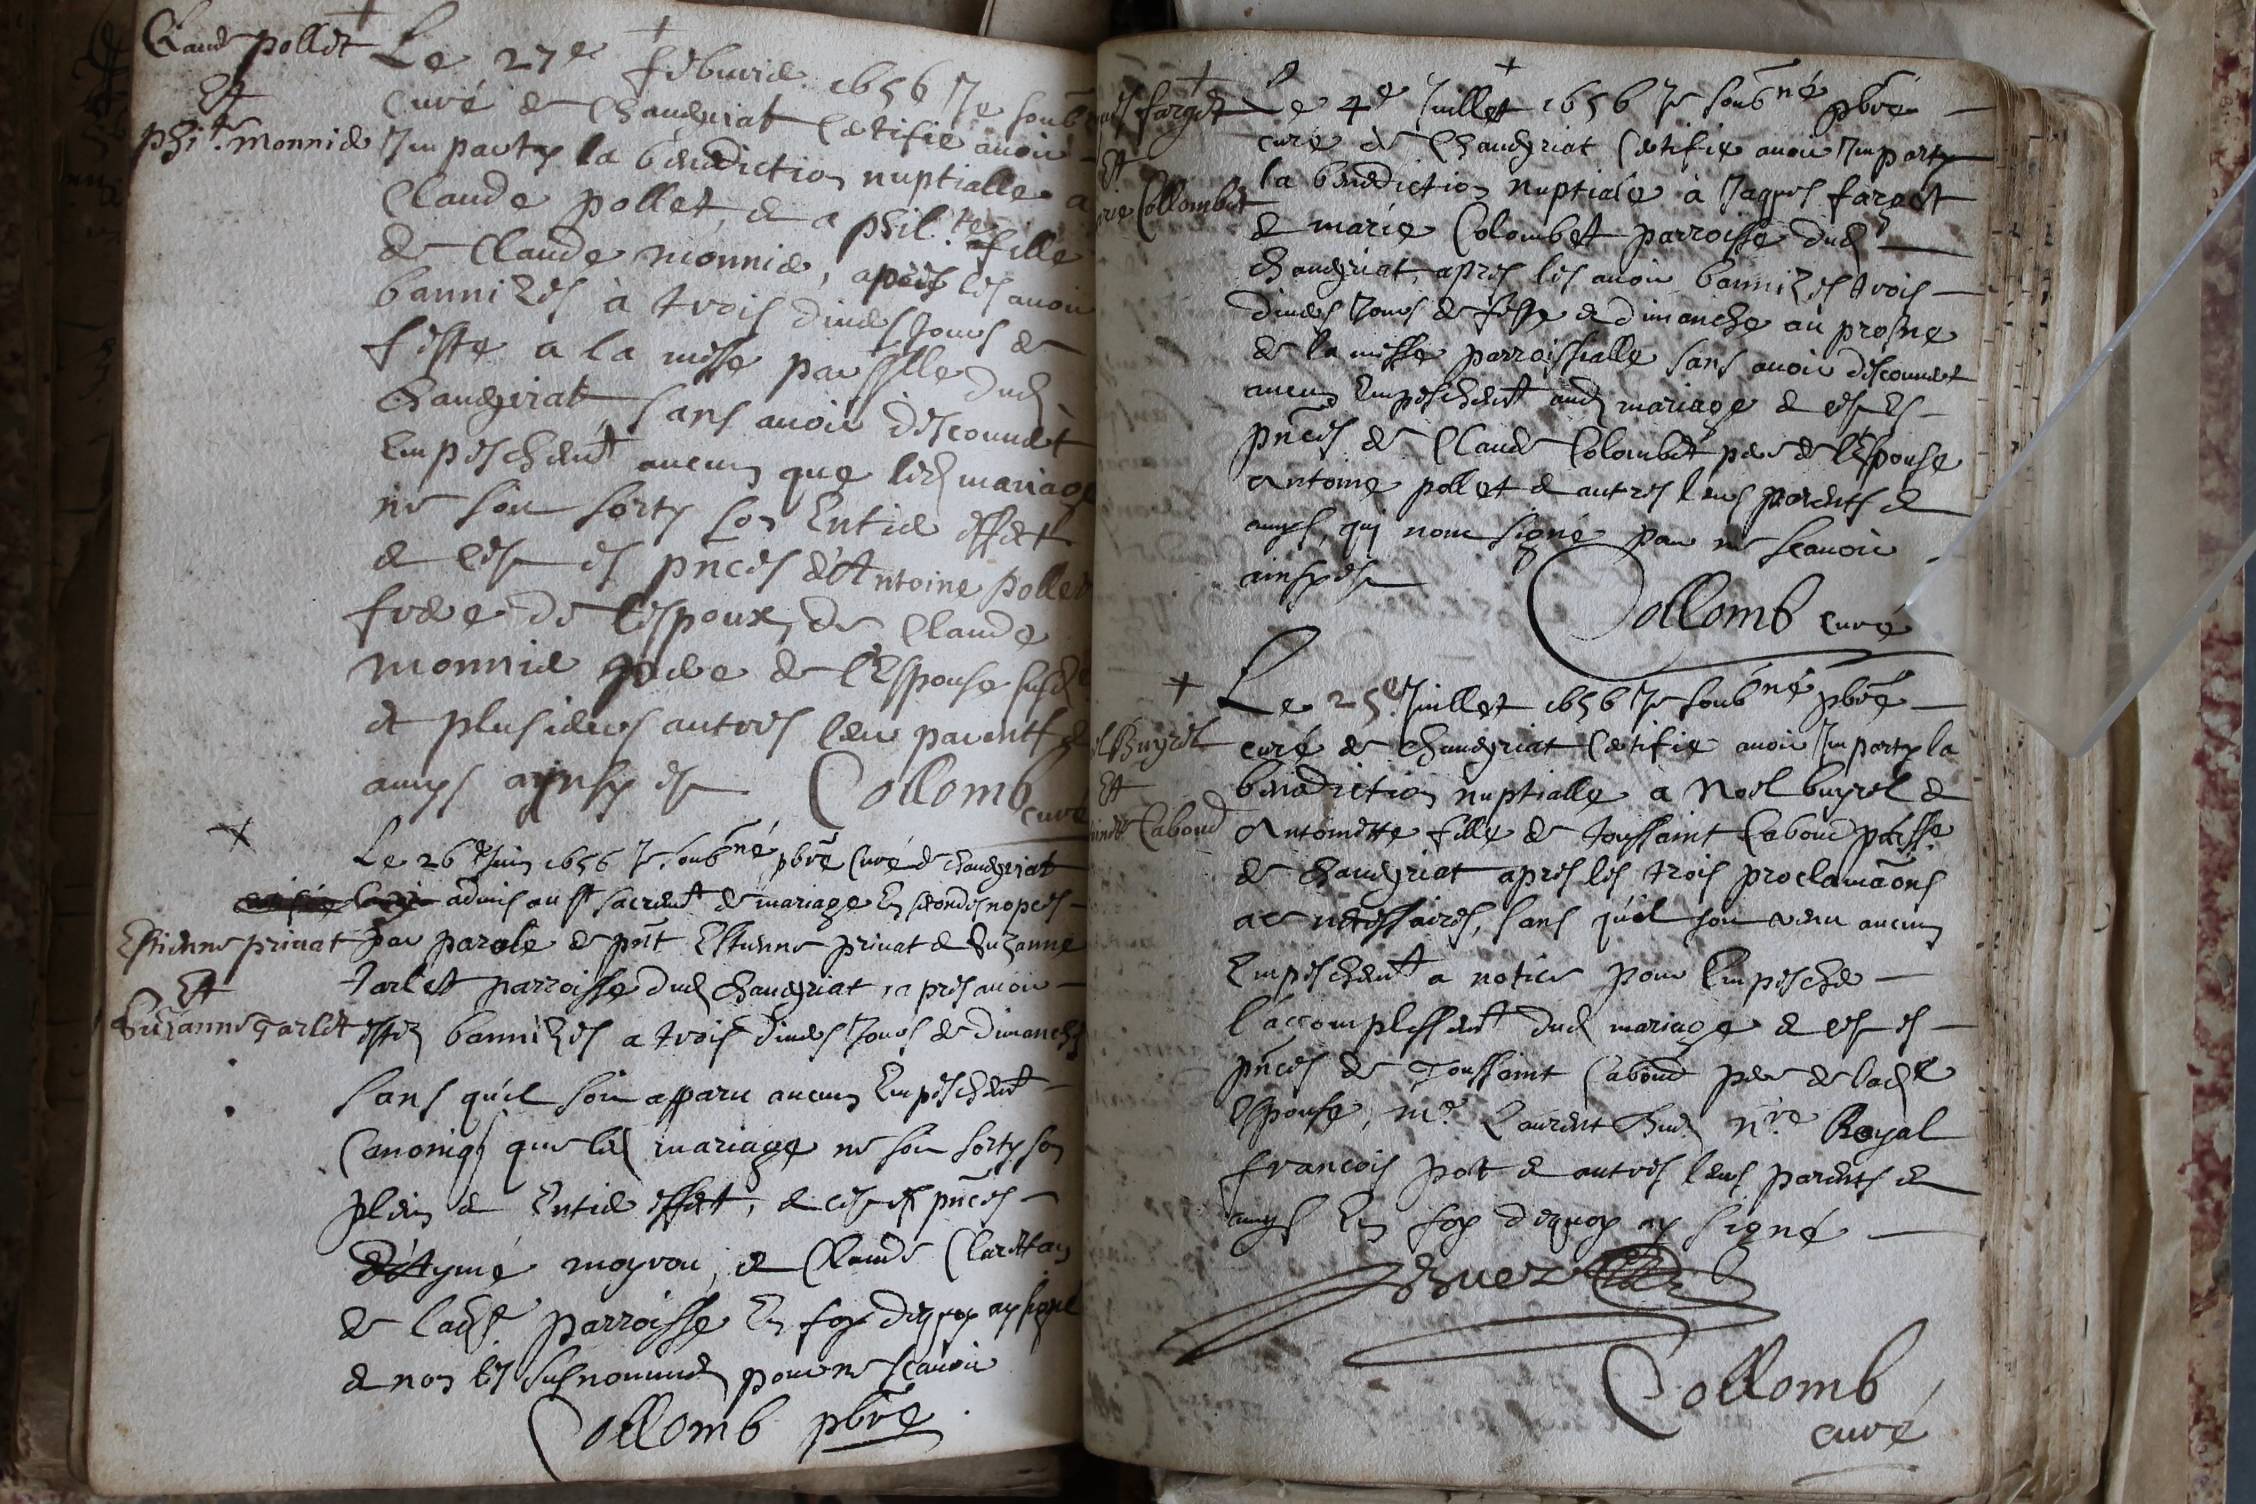 Claude pollet
Et
phi.te monnier
Le 27e febvrier 1656 Je soub
curé de Chaveyriat Certifie avoir
Imparty la benediction nuptialle a
Claude pollet, & a phil.te fille
de Claude monnier, apres les avoir
bannizes à trois divers Jours de
feste a la messe par slle dud
Chaveyriat, sans avoir descouvert
Empeschent aucun que led mariage
ne soit sorty son Entier effect
& cest es pnces d'Antoine pollet
frere de l'espoux, de Claude
monnier pere de l'Espouse susd
et plusieurs autres leur parents &
amys aynsy est Collomb
curé
Le 26e Juin 1656 Je soubné, pbre Curé de chaveyriat
admis au St sacrent de mariage En secondes nopces
Estienne privat
Et
Suzanne Tarlet
par parole de pnt Estienne privat & Suzanne
tarlet parroisse dud chaveyriat, apres avoir
estez bannizes a trois divers Jours de dimanche
sans qu'il soit apparu aucun Empeschent
Canoniq que led mariage ne soit sorty son
plein & Entier effet, & cest es pnces
d'Aymé moyrou, & Claude
de lad. parroisse En foy dequoy ay signé
& non les susnommed pour ne scavoir
Collomb pbre
farget
Et
Collombet
Le 4e Juillet 1656 Je soubné pbre
curé de Chaveyriat Certifie avoir Imparty
la benediction nuptiale à Jaques farget
& marie Colombett parroisse dud
chaveyriat, apres les avoir bannizes trois
divers Jours de feste & dimanche au prosne
de la messe parroissialle sans avoir descouvert
aucun Empeschent aud mariage & cest Es
pnces de Claude Colombet pere de l'Espouse
Antoine pollet & autres leurs parents &
amys, qui nont signé par ne scavoir
ainsy est
Collomb curé
Buyret
Et
Caboud
Le 25e Juillet 1656 Je soubné pbre
curé de chaveyriat Certifie avoir Imparty la
benediction nuptialle a Noel buyret &
Antoinette fille de toussaint Caboud pâsse
de chaveyriat apres les trois proclamaons
ac necessaires, sans qu'il soit venu aucun
Empeschent a notice pour Empescher
l'accomplissent dud mariage & cest es
pnces de Toussaint Caboud pere de lad.
Espouse, me. Laurent nre Royal
francois & autres leurs parents &
amys En foy dequoy ay signé
Collomb
curé